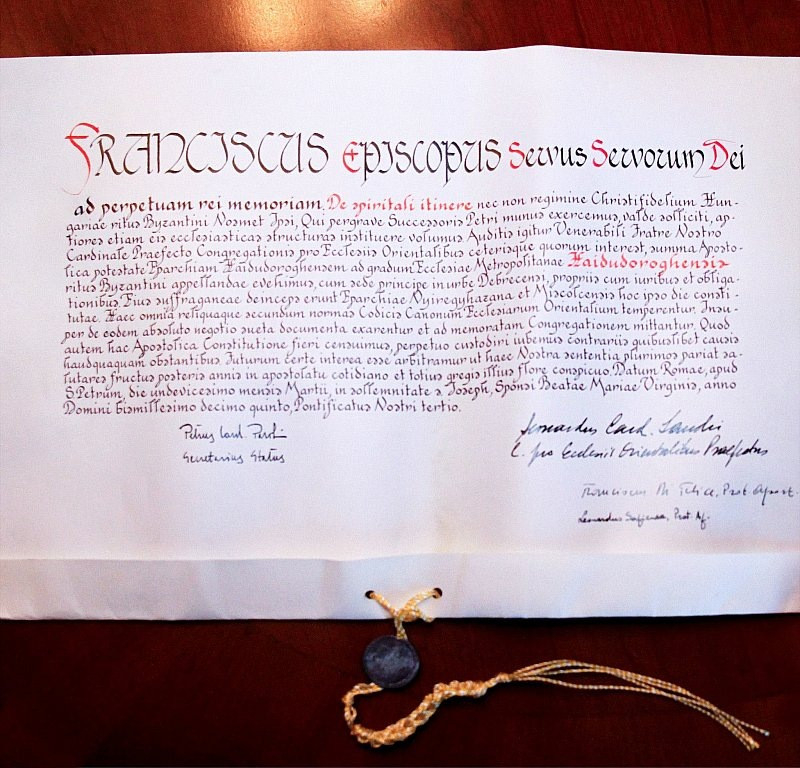 Franciscus Episcopus Servus Servorum Dei
ad perpetuam rei memoriam. De spiritali itinere nec non regimine Christifidelium Hun-
gariae ritus Byzantini Nosmet Ipsi, Qui pergrave Successoris Petri munus exercemus, valde solliciti, ap-
tiores etiam eis ecclesiasticas structuras instituere volumus. Auditis igitur Venerabili Fratre Nostro
Cardinale Praefecto Congregationis pro Ecclesiis Orientalibus ceterisque quorum interest, summa Aposto-
lica potestate Eparchiam Haidudoroghensem ad gradum Ecclesiae Metropolitanae Haidudoroghensis
ritus Byzantini appellandae evehimus, cum sede principe in urbe Debrecensi, propriis cum iuribus et obliga-
tionibus. Eius suffraganeae deinceps erunt Eparchiae Nyiregyhazana et Miscolcensis hoc ipso die consti-
tutae. Haec omnia reliquaque secundum normas Codicis Canonum Ecclesiarum Orientalium temperentur. Insu-
per de eodem absoluto negotio sueta documenta exarentur et ad memoratam Congregationem mittantur. Quod
autem hac Apostolica Constitutione fieri censuimus, perpetuo custodiri iubemus contrariis quibuslibet causis
haudquaquam obstantibus. Futurum certe interea esse arbitramur ut haec Nostra sententia plurimos pariat sa-
lutares fructus posteris annis in apostolatu cotidiano et totius gregis illius flore conspicuo. Datum Romae, apud
S. Petrum, die undevicesimo mensis Martii, in sollemnitate s. Joseph, Sponsi Beatae Mariae Virginis, anno
Domini bismillesimo decimo quinto, Pontificatus Nostri tertio.
Petrus Card. Parolin
Secretarius Status
Leonardus Card. Sandri
C. pro Ecclesiis Orientalibus Praefectus
Franciscus Di Felice, Prot. Apost.
Leonardus Sapienza, Prot. Ap.